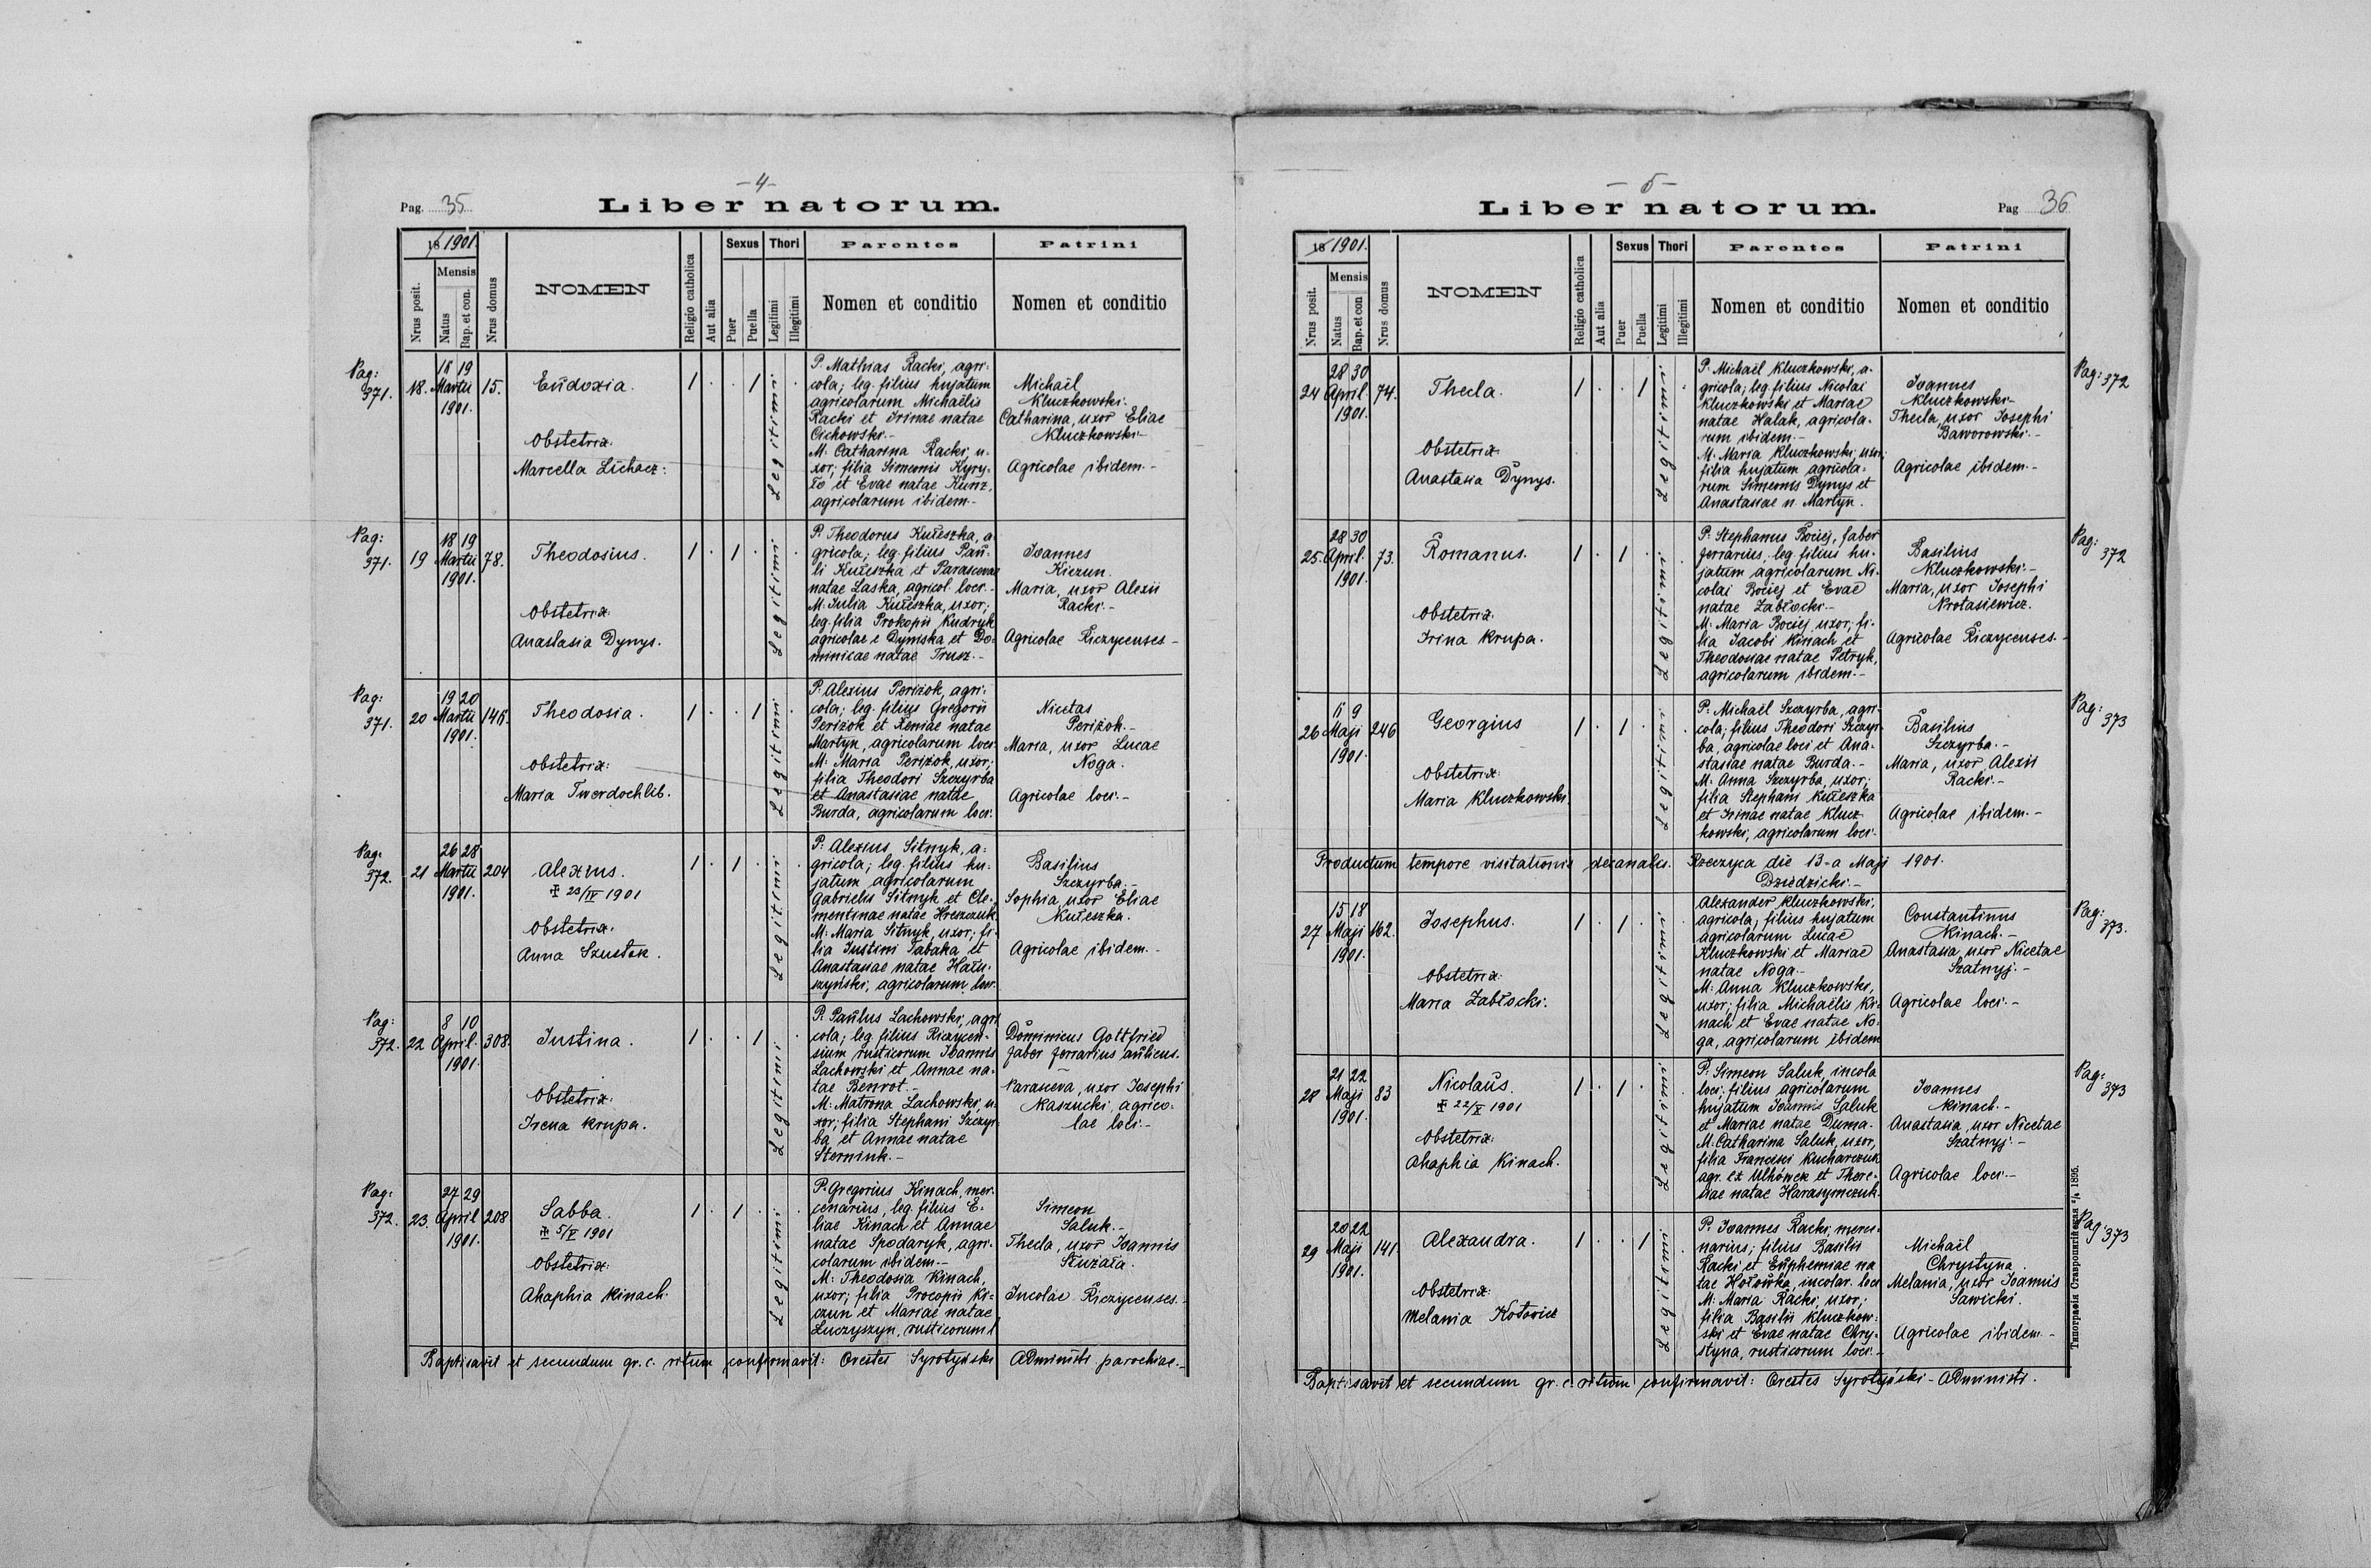 -4-
Pag. 35
Liber natorum.
18 1901.
Nrus posit.
Mensis
Natus
Bap. et con.
Nrus domus
NOMEN
Religio catholica
Aut alia
Sexus
Puer
Puella
Thori
Legitimi
Illegitimi
Parentes
Nomen et conditio
Patrini
Nomen et conditio
Pag:
371.
18.
18 19
Martii
1901.
15.
Eudoxia.
Obstetrix
Marcella Lichacz:
1 . . 1
Legitimi
P. Mathias Racki, agri-
cola; leg. filius hujatum
agricolarum Michaëlis
Racki et Irinae natae
Cichowski.-
M. Catharina Racki, u-
xor; filia Simeonis Kyry-
ło et Evae natae Kuńz,
agricolarum ibidem.-
Michaël
Kluczkowski.
Catharina, uxor Eliae
Kluczkowski-
Agricolae ibidem.-
Pag:
371.
19
18 19
Martii
1901.
78.
Theodosius.
Obstetrix
Anastasia Dynys.
1 . 1 .
Legitimi
P. Theodorus Kułeszka, a
gricola; leg. filius Pau-
li Kułeszka et Parascevae
natae Laska, agricol. loci.-
M. Julia Kułeszka, uxor;
leg. filia Prokopii Kudryk
agricolae e Dyniska et Do-
minicae natae Trusz.-
Joannes
Kiczun.
Maria, uxor Alexii
Racki.-
Agricolae Riczycenses-
Pag:
371.
20
19 20
Martii
1901.
145.
Theodosia.
Obstetrix:
Maria Twerdochlib.
1 . . 1
Legitimi
P. Alexius Periżok, agri-
cola; leg. filius Gregorii
Periżok et Xeniae natae
Martyn, agricolarum loci
M. Maria Periżok, uxor;
filia Theodori Szczyrba
et Anastasiae natae
Burda, agricolarum loci.
Nicetas
Periżok.-
Maria, uxor Lucae
Noga.
Agricolae loci.-
Pag:
372.
21
26 28
Martii
1901.
204
Alexius.
‡ 23/IV 1901
Obstetrix.
Anna Szustak.
1 . 1 .
Legitimi
P. Alexius, Sitnyk, a-
gricola; leg. filius hu-
jatum agricolarum
Gabrielis Sitnyk et Cle-
mentinae natae Hreszczuk
M. Maria Sitnyk, uxor; fi-
lia Justini Tabaka et
Anastasiae natae Hału-
szyński, agricolarum loci.
Basilius
Szczyrba.-
Sophia, uxor Eliae
Kułeszka.
Agricolae ibidem.-
Pag:
372.
22
8 10
April.
1901.
308.
Justina.
Obstetrix.
Irena Krupa.
1 . . 1
Legitimi
P. Paulus Lachowski, agri
cola; leg. filius Riczycen-
sium rusticorum Joannis
Lachowski et Annae na-
tae Benrot.-
M. Matrona Lachowski, u-
xor; filia Stephani Szczyr-
ba et Annae natae
Sternink.-
Dominicus Gottfried
faber ferrarius aulicus.
Parasceva, uxor Josephi
Kaszucki, agrico-
lae loci.-
Pag:
372.
23.
27 29
April
1901.
208
Sabba.
‡ 5/V 1901
Obstetrix:
Ahaphia Kinach.
1 . 1 .
Legitimi
P. Gregorius Kinach, mer-
cenarius, leg. filius E-
liae Kinach et Annae
natae Spodaryk, agri-
colarum ibidem.-
M. Theodosia Kinach,
uxor; filia Procopii Ki-
czun et Mariae natae
Luczyszyn, rusticorum l
Simeon
Saluk.-
Thecla, uxor Joannis
Incolae Riczycenses.
Baptisavit et secundum gr. c. ritum confirmavit: Orestes Syrotyński Administ. parochiae.-
-5-
Liber natorum.
Pag 36
18 1901.
Nrus posit.
Mensis
Natus
Bap. et con
Nrus domus
NOMEN
Religio catholica
Aut alia
Sexus
Puer
Puella
Thori
Legitimi
Illegitimi
Parentes
Nomen et conditio
Patrini
Nomen et conditio
24
28 30
April.
1901.
74.
Thecla.
Obstetrix
Anastasia Dynys.
1 . . 1
Legitimi
P. Michaël Kluczkowski, a-
gricola; leg. filius Nicolai
Kluczkowski et Mariae
natae Halak, agricola-
rum ibidem.-
M. Maria Kluczkowski, uxor;
filia hujatum agricola-
rum Simeonis Dynys et
Anastasiae n. Martyn.
Joannes
Kluczkowski-
Thecla, uxor Josephi
Baworowski.-
Agricolae ibidem.-
Pag: 372
25.
28 30
April.
1901.
73.
Romanus.
Obstetrix
Irina Krupa.
1 . 1 .
Legitimi
P. Stephanus Bociej, faber
ferrarius, leg. filius hu-
jatum agricolarum Ni-
colai Bociej et Evae
natae Zabłocki.-
M. Maria Bociej, uxor; fi-
lia Jacobi Kinach et
Theodosiae natae Petryk,
agricolarum ibidem.-
Basilius
Kluczkowski.-
Maria, uxor Josephi
Protasiewicz.
Agricolae Riczycenses.-
Pag:
372
26
6 9
Maji
1901.
246
Georgius
Obstetrix:
Maria Kluczkowski.
1 . 1 .
Legitimi
P. Michaël Szczyrba, agri-
cola; filius Theodori Szczyr-
ba, agricolae loci et Ana-
stasiae natae Burda.-
M. Anna Szczyrba, uxor;
filia Stephani Kułeszka
et Irinae natae Klucz-
kowski, agricolarum loci.
Basilius
Szczyrba.-
Maria, uxor Alexii
Racki.-
Agricolae ibidem.-
Pag:
373
Productum tempore visitationis decanalis. Rzeczyca die 13-a Maji 1901.
Dziedzicki.-
27
15 18
Maji
1901.
162.
Josephus.
Obstetrix:
Maria Zabłocki.
1 . 1 .
Legitimi
Alexander Kluczkowski,
agricola; filius hujatum
agricolarum Lucae
Kluczkowski et Mariae
natae Noga.-
M. Anna Kluczkowski,
uxor; filia Michaëlis Ki-
nach et Evae natae No-
ga, agricolarum ibidem
Constantinus
Kinach.-
Anastasia, uxor Nicetae
Szatnyj.-
Agricolae loci.-
Pag:
373.
28
21 22
Maji
1901.
83
Nicolaus.
‡ 22/X 1901
Obstetrix:
Ahaphia Kinach.
1 . 1 .
Legitimi
P. Simeon Saluk, incola
loci; filius agricolarum
hujatum Joannis Saluk
et Mariae natae Duma.
M. Catharina Saluk, uxor,
filia Francisci Kucharczuk
agr. ex Ulhówek et There-
siae natae Harasymczuk.
Joannes
Kinach.-
Anastasia, uxor Nicetae
Szatnyj.-
Agricolae loci.-
Pag:
373
29
20 22
Maji
1901.
141
Alexandra.
Obstetrix:
Melania Kotowicz
1 . . 1
Legitimi
P. Joannes Racki, merce-
narius; filius Basilii
Racki et Euphemiae na
tae Hołowka, incolar. loci
M. Maria Racki, uxor;
filia Basilii Kluczkow-
ski et Evae natae Chry-
styna, rusticorum loci.-
Michaël
Chrystyna.
Melania, uxor Joannis
Sawicki.
Agricolae ibidem.-
Pag: 373
Baptisavit et secundum gr. c. ritum confirmavit: Orestes Syrotyński - Administ.
Типографія Ставропигійская 1895.